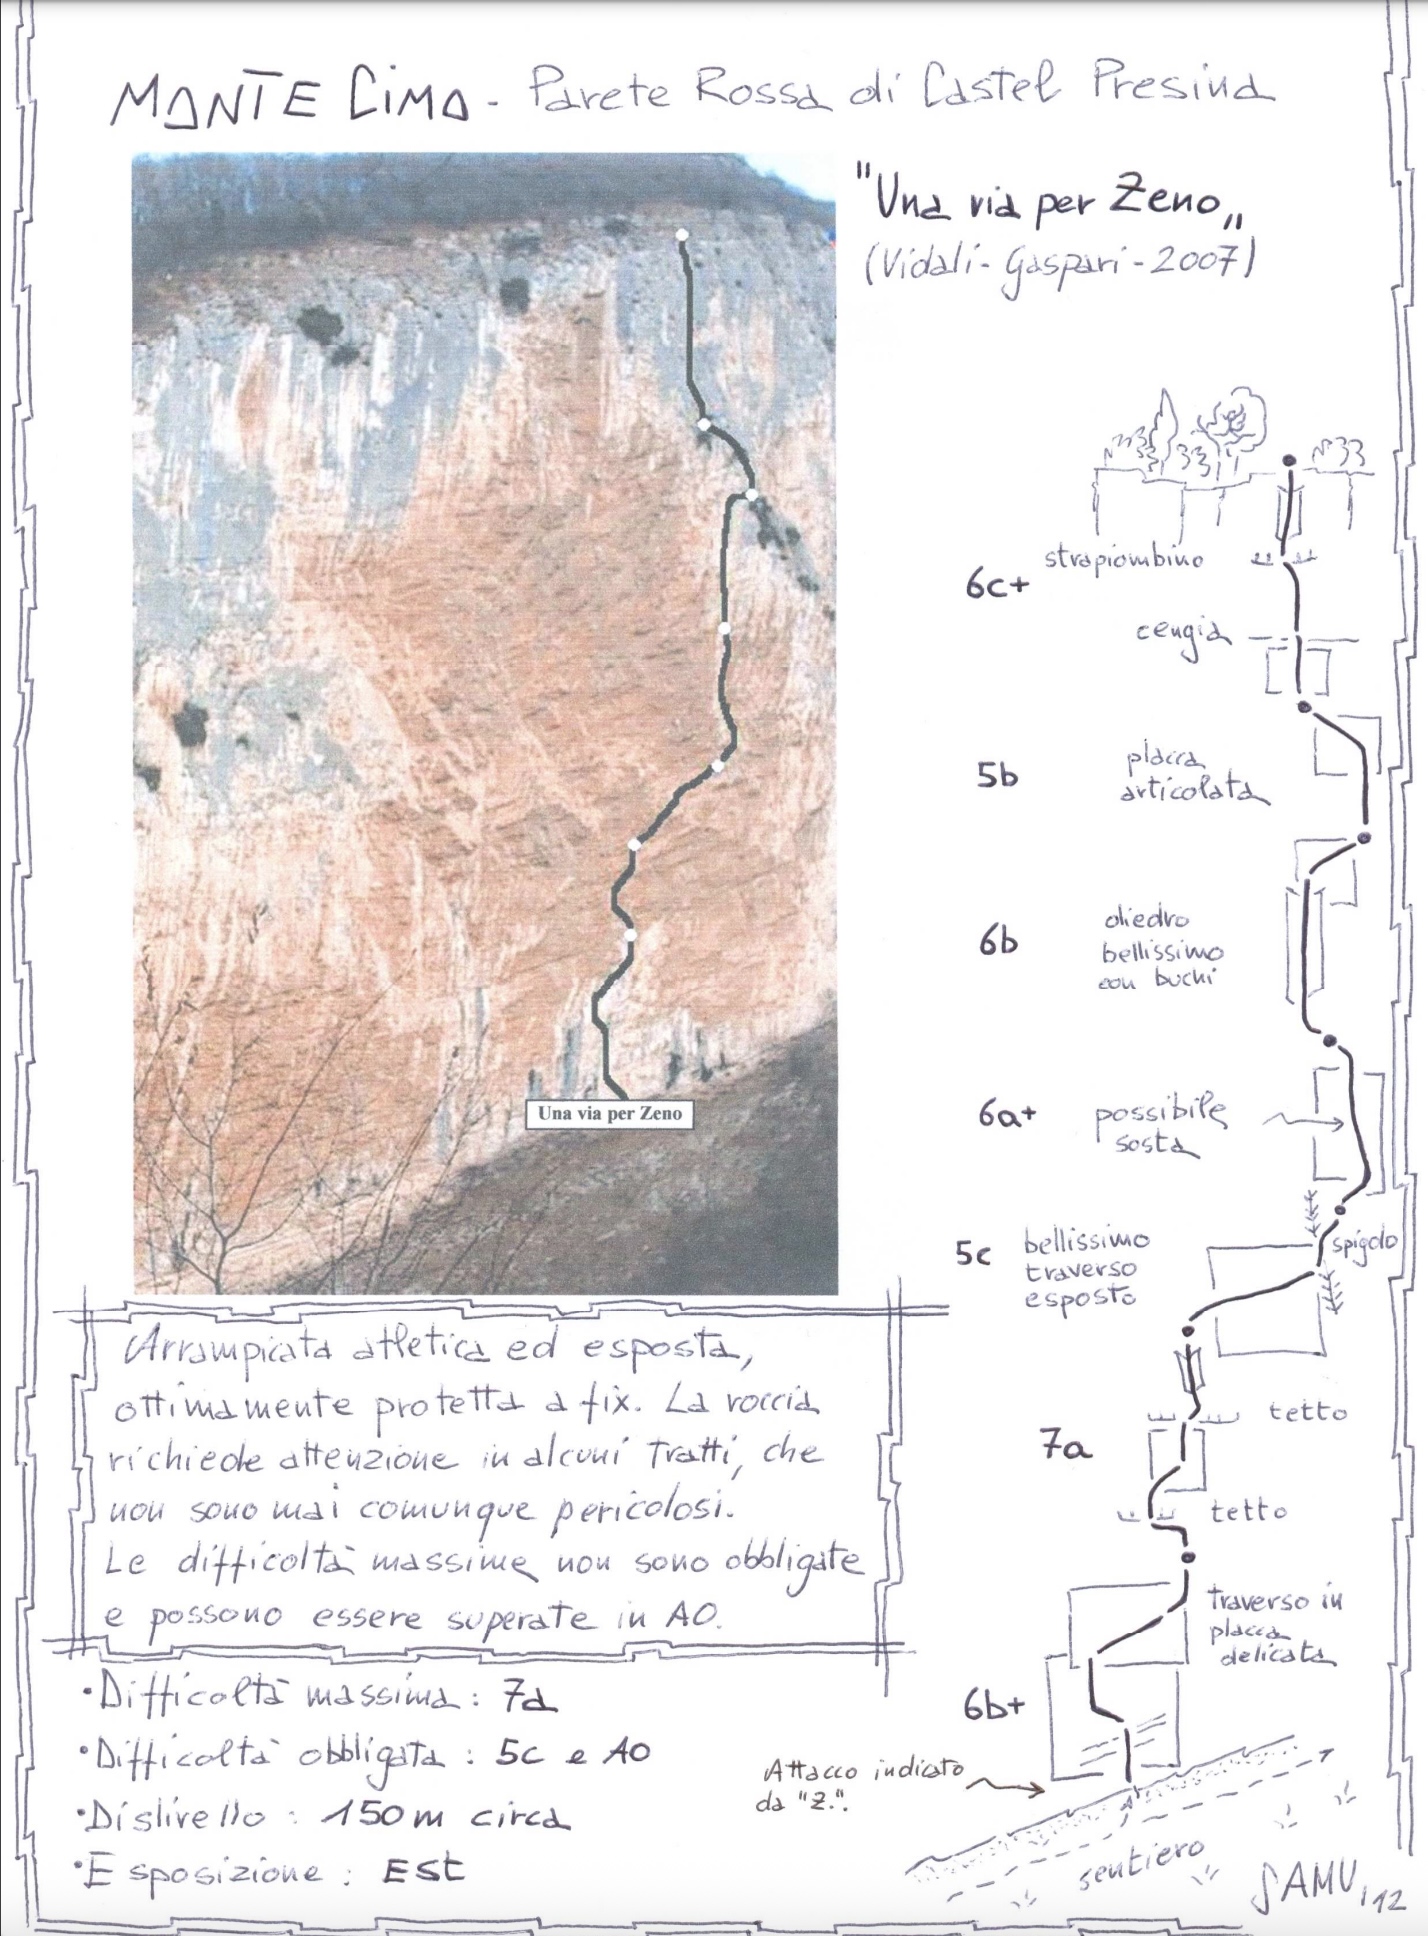 MONTE CIMO - Parete Rossa di Castel Presina
"Una via per Zeno„
(Vidali - Gaspari - 2007)
strapiombino
6c+
cengia
5b
placca
articolata
6b
diedro
bellissimo
con buchi
6a+
possibile
sosta
5c
bellissimo
traverso
esposto
spigolo
tetto
7a
tetto
traverso in
placca
delicata
6b+
Attacco indicato
da "Z.".
sentiero
SAMU '12
Una via per Zeno
Arrampicata atletica ed esposta,
ottimamente protetta a fix. La roccia
richiede attenzione in alcuni tratti, che
non sono mai comunque pericolosi.
Le difficoltà massime non sono obbligate
e possono essere superate in A0.
•Difficoltà massima: 7a
•Difficoltà obbligata: 5c e A0
•Dislivello: 150m circa
•Esposizione: Est